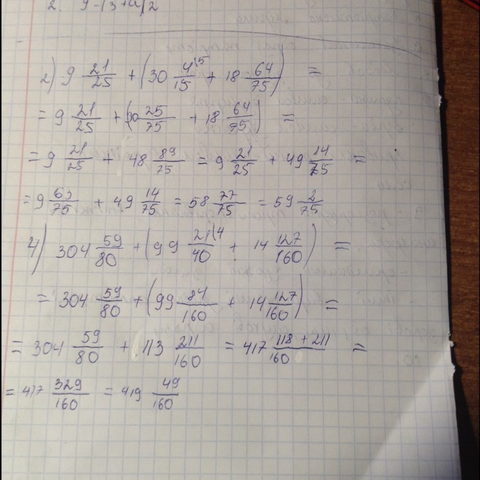 2) 9 21/25 + (30 4^5/15 + 18 64/75) =
= 9 21/25 + (30 25/75 + 18 64/75) =
= 9 21/25 + 48 89/75 = 9 21/25 + 49 14/75 =
= 9 63/75 + 49 14/75 = 58 77/75 = 59 2/75
4) 304 59/80 + (99 21^4/40 + 14 127/160) =
= 304 59/80 + (99 84/160 + 14 127/160) =
= 304 59/80 + 113 211/160 = 417 118 + 211/160 =
= 417 329/160 = 419 49/160